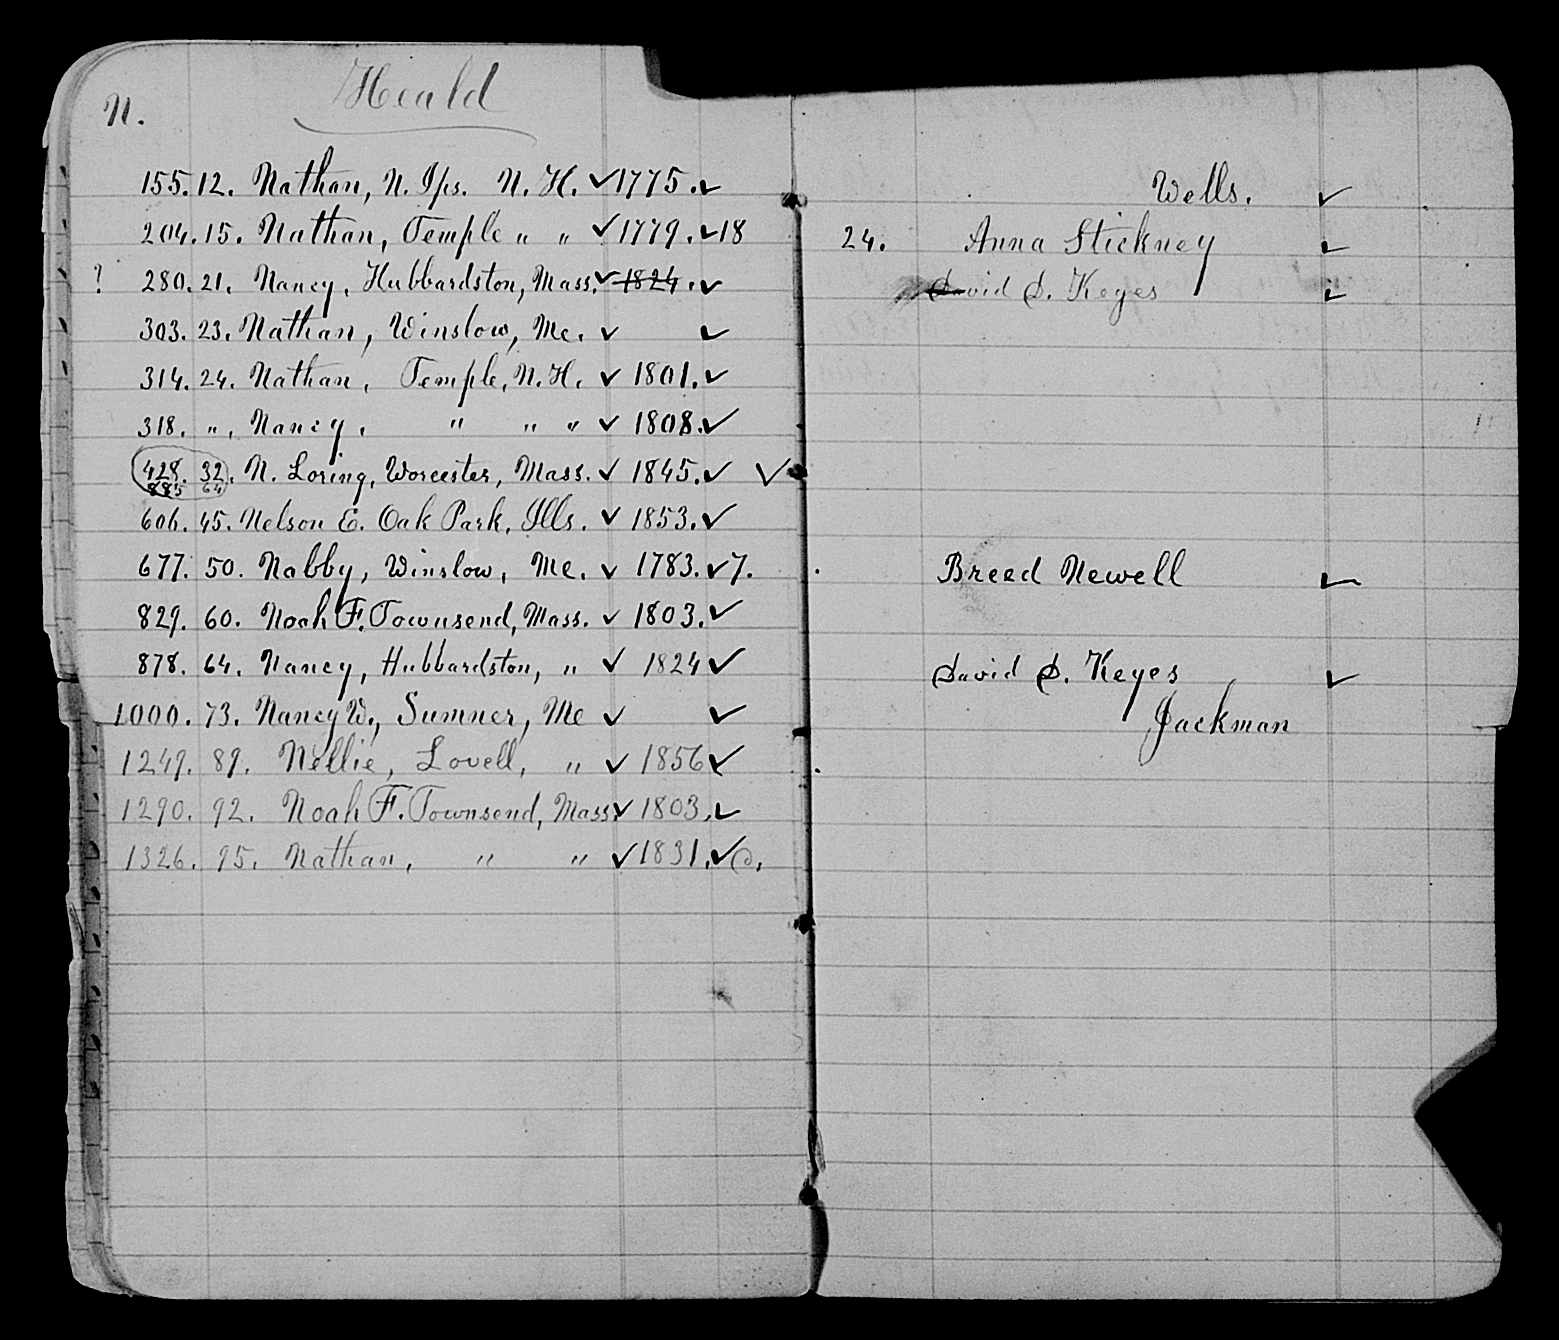 Heald
N.
155. 12. Nathan, N. Ips. N. H. ✓ 1775. ✓
204. 15. Nathan, Temple " " ✓ 1779. ✓ 18
? 280. 21. Nancy, Hubbardston, Mass. ✓ 1824. ✓
303. 23. Nathan, Winslow, Me. ✓ ✓
314. 24. Nathan, Temple, N. H. ✓ 1801. ✓
318. ". Nancy. " " " ✓ 1808. ✓
428. 32. N. Loring, Worcester, Mass. ✓ 1845. ✓ ✓
885 64
606. 45. Nelson E. Oak Park, Ills. ✓ 1853. ✓
677. 50. Nabby, Winslow, Me. ✓ 1783. ✓ 7.
829. 60. Noah F. Townsend, Mass. ✓ 1803. ✓
878. 64. Nancy, Hubbardston, " ✓ 1824 ✓
1000. 73. Nancy W., Sumner, Me ✓ ✓
1249. 89. Nellie, Lovell, " ✓ 1856 ✓
1290. 92. Noah F. Townsend, Mass. ✓ 1803. ✓
1326. 95. Nathan, " " ✓ 1831. ✓ D.
Wells. ✓
24. Anna Stickney ✓
David D. Keyes ✓
Breed Newell ✓
David D. Keyes ✓
Jackman